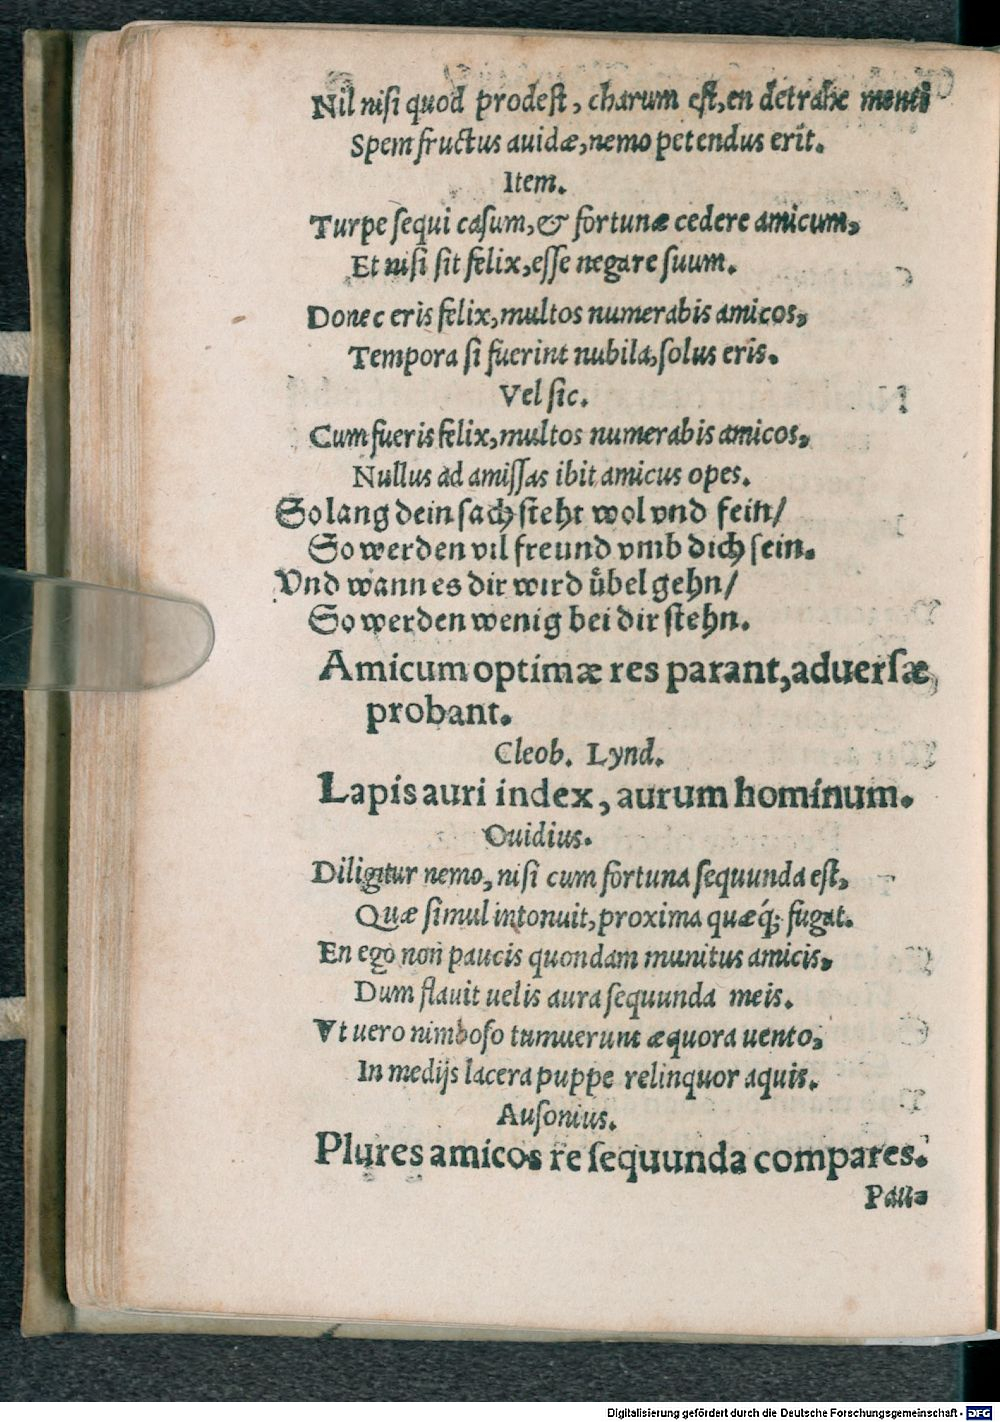 Nil nisi quod prodest, charum est, en detrahe menti
Spem fructus auidæ, nemo petendus erit.
Item.
Turpe sequi casum, & fortunæ cedere amicum,
Et nisi sit felix, esse negare suum.
Donec eris felix, multos numerabis amicos,
Tempora si fuerint nubila, solus eris.
Vel sic.
Cum fueris felix, multos numerabis amicos,
Nullus ad amissas ibit amicus opes.
So lang dein sach steht wol vnd fein/
So werden vil freund vmb dich sein.
Vnd wann es dir wird uͤbel gehn/
So werden wenig bei dir stehn.
Amicum optimæ res parant, aduersæ
probant.
Cleob. Lynd.
Lapis auri index, aurum hominum.
Ouidius.
Diligitur nemo, nisi cum fortuna sequunda est,
Quæ simul intonuit, proxima quæq́; fugat.
En ego non paucis quondam munitus amicis,
Dum flauit uelis aura sequunda meis.
Vt uero nimboso tumuerunt æquora uento,
In medijs lacera puppe relinquor aquis.
Ausonius.
Plures amicos re sequunda compares.
Pau-
Digitalisierung gefördert durch die Deutsche Forschungsgemeinschaft - DFG